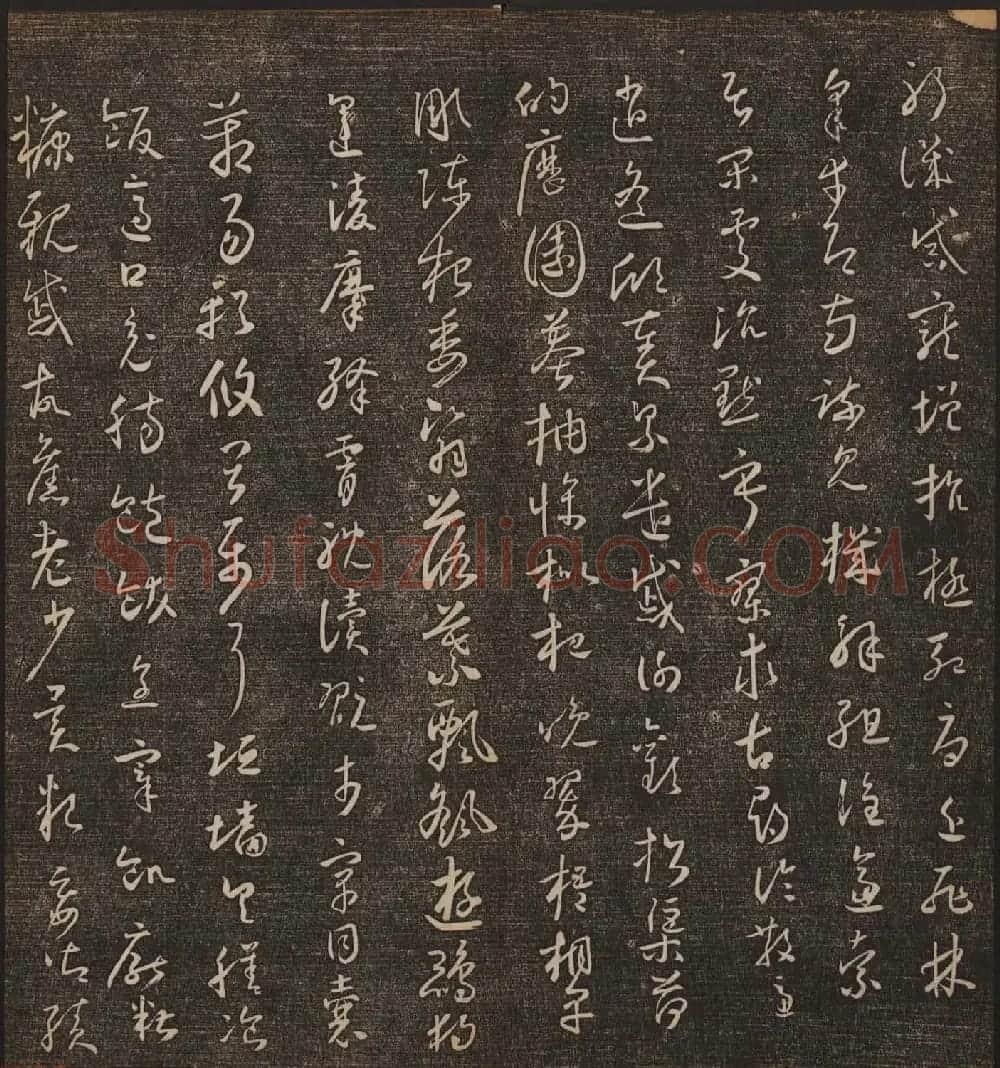 躬譏誡寵增抗極殆辱近恥林
皋幸即兩疏見機解組誰逼索
居閑處沉默寂寥求古尋論散慮
逍遙欣奏累遣慼謝歡招渠荷
的歷園莽抽條枇杷晚翠梧桐早
凋陳根委翳落葉飄颻遊鵾獨
運凌摩絳霄耽讀翫市寓目囊
箱易輶攸畏屬耳垣墻具膳飡
飯適口充腸飽飫烹宰飢厭糟
糠親戚故舊老少異糧妾御績
Shufaziliao.COM